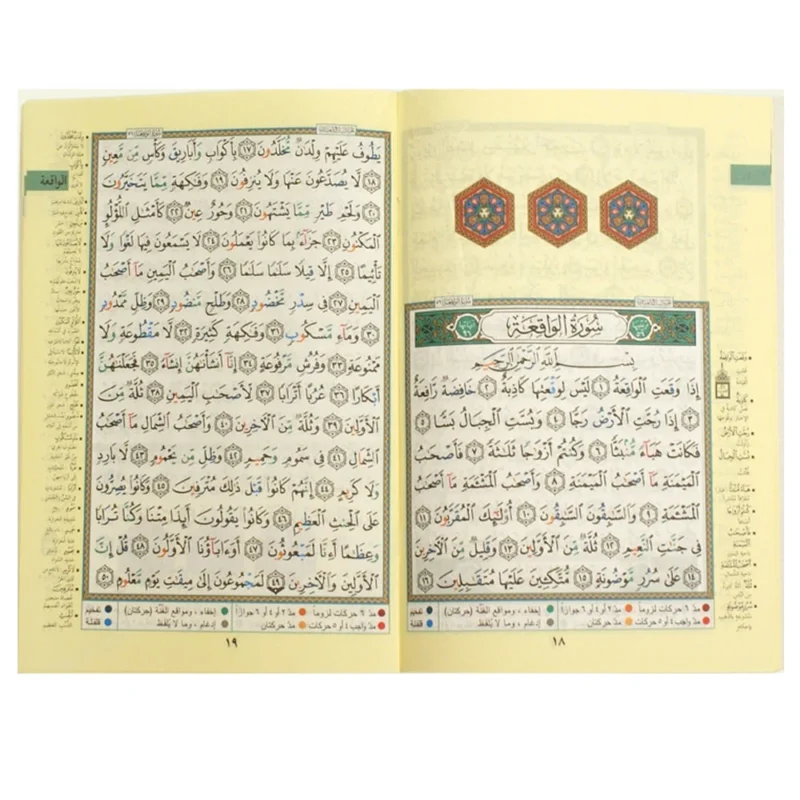 سُورَةُ الوَاقِعَةِ
بِسْمِ اللَّهِ الرَّحْمَٰنِ الرَّحِيمِ
إِذَا وَقَعَتِ الْوَاقِعَةُ ١ لَيْسَ لِوَقْعَتِهَا كَاذِبَةٌ ٢ خَافِضَةٌ رَافِعَةٌ
٣ إِذَا رُجَّتِ الْأَرْضُ رَجًّا ٤ وَبُسَّتِ الْجِبَالُ بَسًّا ٥
فَكَانَتْ هَبَاءً مُنْبَثًّا ٦ وَكُنْتُمْ أَزْوَاجًا ثَلَاثَةً ٧ فَأَصْحَابُ
الْمَيْمَنَةِ مَا أَصْحَابُ الْمَيْمَنَةِ ٨ وَأَصْحَابُ الْمَشْأَمَةِ مَا أَصْحَابُ
الْمَشْأَمَةِ ٩ وَالسَّابِقُونَ السَّابِقُونَ ١٠ أُولَٰئِكَ الْمُقَرَّبُونَ ١١
فِي جَنَّاتِ النَّعِيمِ ١٢ ثُلَّةٌ مِنَ الْأَوَّلِينَ ١٣ وَقَلِيلٌ مِنَ الْآخِرِينَ
١٤ عَلَىٰ سُرُرٍ مَوْضُونَةٍ ١٥ مُتَّكِئِينَ عَلَيْهَا مُتَقَابِلِينَ ١٦
مدّ ٦ حركات لزوماً مدّ ٢ أو ٤ أو ٦ جوازاً إخفاء، ومواقع الغُنَّة (حركتان) تفخيم
مدّ واجب ٤ أو ٥ حركات مدّ حركتان إدغام، وما لا يُلفَظ قلقلة
١٨
الواقعة
يَطُوفُ عَلَيْهِمْ وِلْدَانٌ مُخَلَّدُونَ ١٧ بِأَكْوَابٍ وَأَبَارِيقَ وَكَأْسٍ مِنْ مَعِينٍ
١٨ لَا يُصَدَّعُونَ عَنْهَا وَلَا يُنْزِفُونَ ١٩ وَفَاكِهَةٍ مِمَّا يَتَخَيَّرُونَ
٢٠ وَلَحْمِ طَيْرٍ مِمَّا يَشْتَهُونَ ٢١ وَحُورٌ عِينٌ ٢٢ كَأَمْثَالِ اللُّؤْلُؤِ
الْمَكْنُونِ ٢٣ جَزَاءً بِمَا كَانُوا يَعْمَلُونَ ٢٤ لَا يَسْمَعُونَ فِيهَا لَغْوًا وَلَا
تَأْثِيمًا ٢٥ إِلَّا قِيلًا سَلَامًا سَلَامًا ٢٦ وَأَصْحَابُ الْيَمِينِ مَا أَصْحَابُ
الْيَمِينِ ٢٧ فِي سِدْرٍ مَخْضُودٍ ٢٨ وَطَلْحٍ مَنْضُودٍ ٢٩ وَظِلٍّ مَمْدُودٍ
٣٠ وَمَاءٍ مَسْكُوبٍ ٣١ وَفَاكِهَةٍ كَثِيرَةٍ ٣٢ لَا مَقْطُوعَةٍ وَلَا
مَمْنُوعَةٍ ٣٣ وَفُرُشٍ مَرْفُوعَةٍ ٣٤ إِنَّا أَنْشَأْنَاهُنَّ إِنْشَاءً ٣٥ فَجَعَلْنَاهُنَّ
أَبْكَارًا ٣٦ عُرُبًا أَتْرَابًا ٣٧ لِأَصْحَابِ الْيَمِينِ ٣٨ ثُلَّةٌ مِنَ
الْأَوَّلِينَ ٣٩ وَثُلَّةٌ مِنَ الْآخِرِينَ ٤٠ وَأَصْحَابُ الشِّمَالِ مَا أَصْحَابُ
الشِّمَالِ ٤١ فِي سَمُومٍ وَحَمِيمٍ ٤٢ وَظِلٍّ مِنْ يَحْمُومٍ ٤٣ لَا بَارِدٍ
وَلَا كَرِيمٍ ٤٤ إِنَّهُمْ كَانُوا قَبْلَ ذَٰلِكَ مُتْرَفِينَ ٤٥ وَكَانُوا يُصِرُّونَ
عَلَى الْحِنْثِ الْعَظِيمِ ٤٦ وَكَانُوا يَقُولُونَ أَئِذَا مِتْنَا وَكُنَّا تُرَابًا
وَعِظَامًا أَإِنَّا لَمَبْعُوثُونَ ٤٧ أَوَآبَاؤُنَا الْأَوَّلُونَ ٤٨ قُلْ إِنَّ
الْأَوَّلِينَ وَالْآخِرِينَ ٤٩ لَمَجْمُوعُونَ إِلَىٰ مِيقَاتِ يَوْمٍ مَعْلُومٍ ٥٠
مدّ ٦ حركات لزوماً مدّ ٢ أو ٤ أو ٦ جوازاً إخفاء، ومواقع الغُنَّة (حركتان) تفخيم
مدّ واجب ٤ أو ٥ حركات مدّ حركتان إدغام، وما لا يُلفَظ قلقلة
١٩